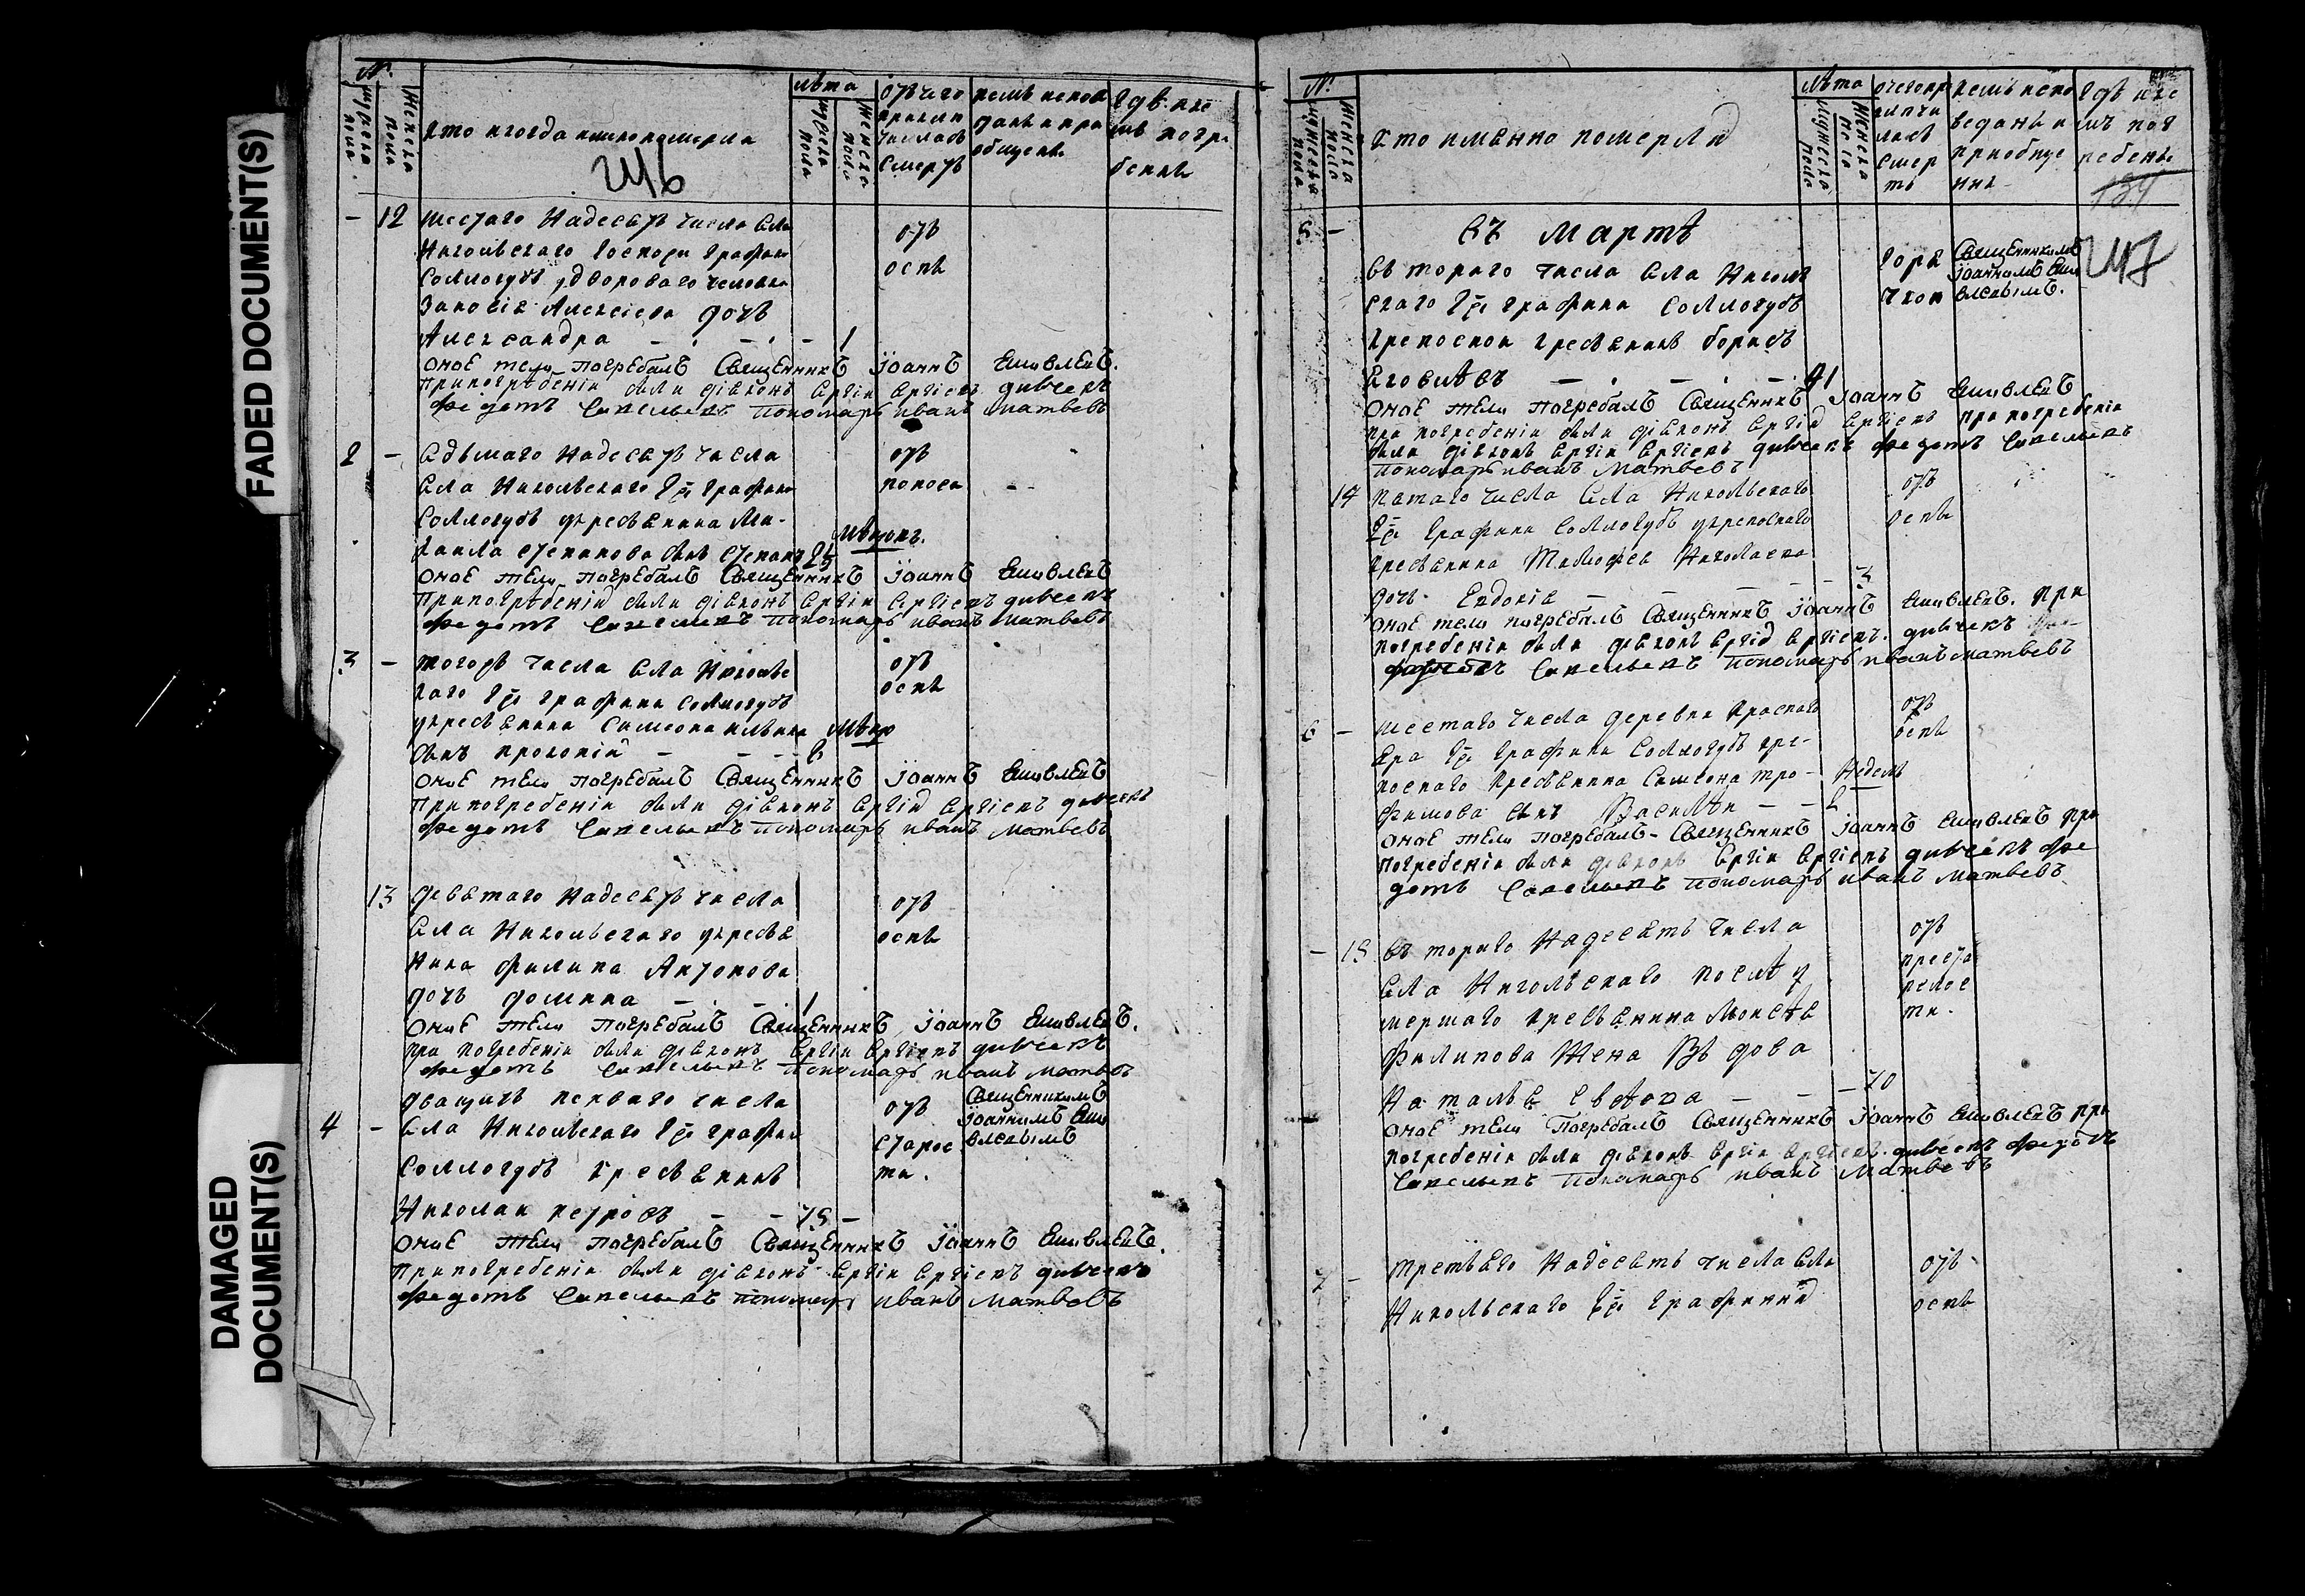 FADED DOCUMENT(S)
DAMAGED
DOCUMENT(S)
№
мужеска пола
женска пола
кто когда имяно померли
лѣта
мужеска пола
женска пола
отъ чего приключилась смерть
кемъ исповѣданы и пріобщены
гдѣ кѣмъ погребены
246
- 12 шестаго Надесять числа села
Никольскаго Госпожи Графини
Соллогубъ двороваго человека
отъ
оспы
Алексѣева дочь
Александра - 1
оное тело погребалъ Священникъ Іоаннъ Яковлевъ.
При погребеніи были діаконъ Сергіи Сергіевъ дьячекъ
Федотъ Савельевъ пономарь иванъ матвѣевъ
2 - седьмаго Надесять числа
села Никольскаго Гжи Графини
Соллогубъ у крестьянина Ми-
хаила Степанова сынъ Степанъ 2
отъ
поноса
оное тело погребалъ Священникъ Іоаннъ Яковлевъ
При погребеніи были діаконъ Сергіи Сергіевъ дьячекъ
Федотъ Савельевъ пономарь иванъ матвѣевъ
3 - тогожъ числа села Никольс
каго Гжи Графини Соллогубъ
у крестьянина Симеона
сынъ прокопій -
отъ
оспы
оное тело погребалъ Священникъ Іоаннъ Яковлевъ
При погребеніи были діаконъ Сергіи Сергіевъ дьячекъ
Федотъ Савельевъ пономарь иванъ матвѣевъ
13 девятаго Надесять числа
села Никольскаго у крестья
нина филипа Антонова
дочь домника - 1
отъ
оспы
оное тело погребалъ Священникъ Іоаннъ Яковлевъ.
При погребеніи были діаконъ Сергіи Сергіевъ дьячекъ
Федотъ Савельевъ пономарь иванъ матвѣевъ
двацать перваго числа
4 - села Никольскаго Гжи Графини
Соллогубъ крестьянинъ
Николаи петровъ - - 75 -
отъ
старос
ти.
Священникомъ
Іоанномъ Яко
влевымъ
оное тело погребалъ Священникъ Іоаннъ Яковлевъ.
При погребеніи были діаконъ Сергіи Сергіевъ дьячекъ
Федотъ Савельевъ пономарь иванъ матвѣевъ
№
мужеска пола
женска пола
кто имянно померли
лѣта
мужеска пола
женска пола
отчего приключилась смерть
кемъ исповеданы и приобщены
гдѣ кемъ погребены
134
247
5 - въ мартѣ
втораго числа села Николь
скаго Гжи графини Соллогубъ
крепоснои кресьянинъ борисъ
- 41
горя
чкои
Священникомъ
Іоанномъ Яко
влевымъ.
оное тело погребалъ Священникъ Іоаннъ Яковлевъ
при погребеніи были діаконъ Сергіи Сергіевъ при погребеніи
были діаконъ Сергіи Сергіевъ дьячекъ Федотъ Савельевъ
пономарь иванъ матвѣевъ
14 пятаго числа села Никольскаго
Гжи Графини Соллогубъ у крепоснаго
кресьянина Тимофея Николаева
дочь Евдокія - 3
отъ
оспы
оное тело погребалъ Священникъ Іоаннъ Яковлевъ. При
погребеніи были діаконъ Сергіи Сергіевъ. дьячекъ
Савельевъ пономарь иванъ матвѣевъ
6 - шестаго числа деревни Краснаго
Яра Гжи Графини Соллогубъ кре-
поснаго кресьянина Симеона тро-
фимова сынъ Василѣи - -
Недель
отъ
оспы
оное тело погребалъ Священникъ Іоаннъ Яковлевъ при
погребеніи были діаконъ Сергіи Сергіевъ дьячекъ фе
дотъ Савельевъ пономарь иванъ матвѣевъ
- 15 втораго Надесять числа
села Никольскаго послѣ у
мершаго кресьянина Моисѣя
Филипова Жена Вдова
Наталья - 70
отъ
преста
релос
ти.
оное тело погребалъ Священникъ Іоаннъ Яковлевъ при
погребеніи были діаконъ Сергіи Сергіевъ. дьячекъ Федотъ
Савельевъ пономарь иванъ матвѣевъ
7 - третьяго Надесять числа села
Никольскаго Гжи Графини
отъ
оспы